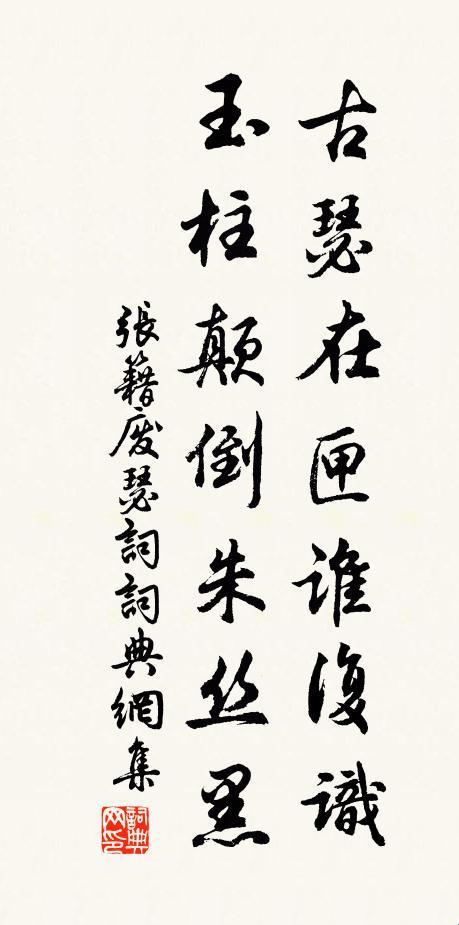 古瑟在匣谁復識
玉柱颠倒朱丝黑
張籍废瑟詞詞典網集
詞典
网印